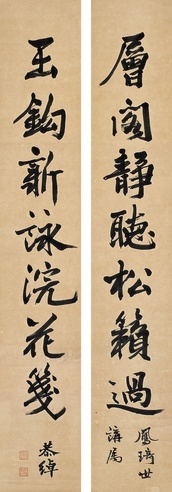 層閣靜聽松籟過
鳳琦世
講屬
玉鈎新詠浣花箋
恭綽